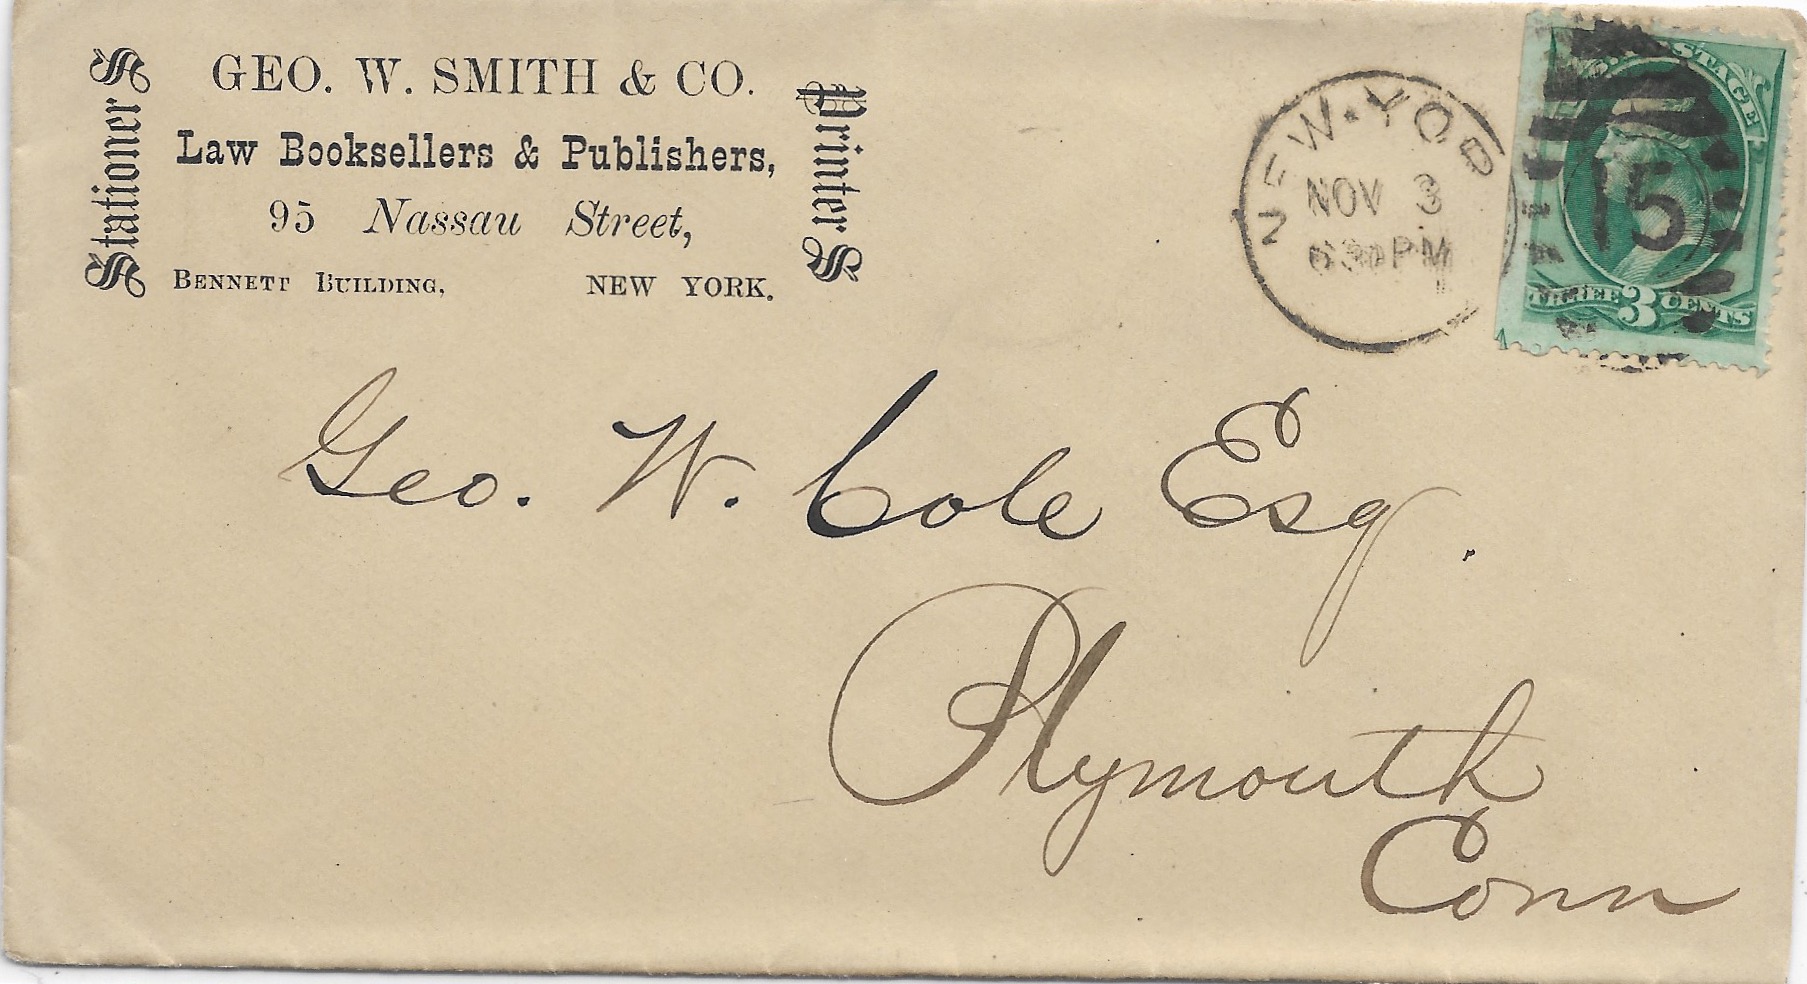 StationerS
GEO. W. SMITH & CO.
Law Booksellers & Publishers,
95 Nassau Street,
BENNETT BUILDING, NEW YORK.
PrinterS
NEW·YOR
NOV 3
630PM
15
POSTAGE
THREE 3 CENTS
Geo. W. Cole Esq.
Plymouth
Conn